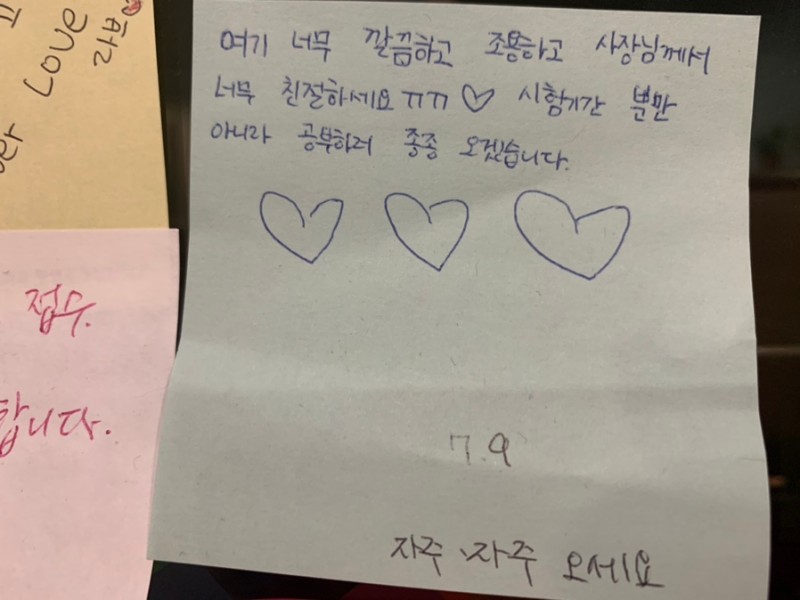 여기 너무 깔끔하고 조용하고 사장님께서
너무 친절하세요ㅠㅠ♡ 시험기간 뿐만
아니라 공부하러 종종 오겠습니다.
♡ ♡ ♡
7.9
자주 자주 오세요
Love
접수.
합니다.